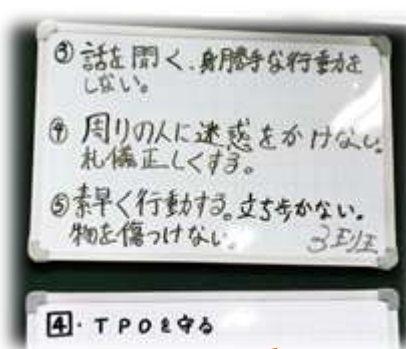 ③ 話を聞く、身勝手な行動を
しない。
④ 周りの人に迷惑をかけない。
礼儀正しくする。
⑤ 素早く行動する。立ち歩かない。
物を傷つけない。
4・TPOを守る